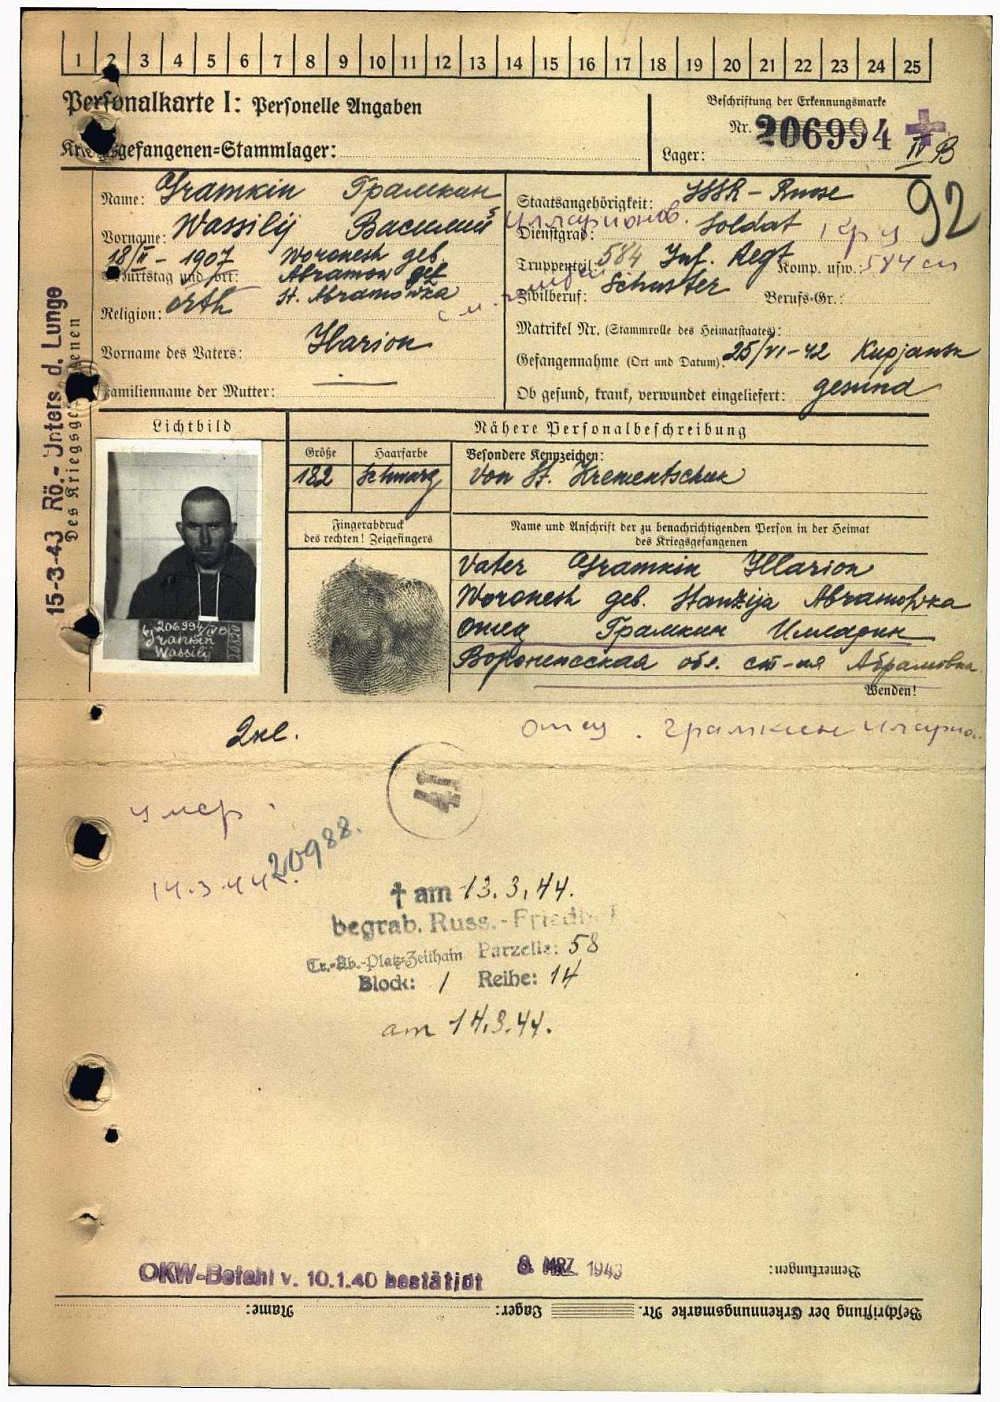 1 2 3 4 5 6 7 8 9 10 11 12 13 14 15 16 17 18 19 20 21 22 23 24 25
Personalkarte I: Personelle Angaben
Kriegsgefangenen=Stammlager:
Beschriftung der Erkennungsmarke
Nr. 206994
Lager: IV B
92
Name: Gramkin Грамкин
Vorname: Wassilij Василий
Илларионов.
18/II - 1907 Woronesh geb.
Geburtstag und =ort: Abramow geb
St. Abramowka
Religion: orth
Vorname des Vaters: Ilarion
Familienname der Mutter:
Staatsangehörigkeit: SSSR - Russe
Dienstgrad: Soldat
Truppenteil: 584 Inf. Regt Komp. usw.: 584 сп
Zivilberuf: Schuster Berufs-Gr.:
Matrikel Nr. (Stammrolle des Heimatstaates):
Gefangennahme (Ort und Datum): 25/VI-42 Kupjansk
Ob gesund, krank, verwundet eingeliefert: gesund
15-3-43 Rö.- Unters d. Lunge
Des Kriegsgefangenen
Lichtbild
206994/IVB
Gramkin
Wassilij
Nähere Personalbeschreibung
Größe Haarfarbe Besondere Kennzeichen:
182 schwarz Von St. Krementschuk
Fingerabdruck
des rechten! Zeigefingers
Name und Anschrift der zu benachrichtigenden Person in der Heimat
des Kriegsgefangenen
Vater Gramkin Illarion
Woronesh geb. Stanzija Abramowka
Отец Грамкин Илларин
Воронежская обл. ст-ия Абрамовка
Wenden!
отец. Грамкин Илларио
41
умер.
14.3.44г.
20988.
† am 13.3.44.
begrab. Russ.-Friedhof
Tr.-Üb.-Platz-Zeithain Parzelle: 58
Block: 1 Reihe: 14
am 14.3.44.
OKW-Befehl v. 10.1.40 bestätigt
8. MRZ. 1943
Bemerkungen:
Beschriftung der Erkennungsmarke Nr. Lager: Name: